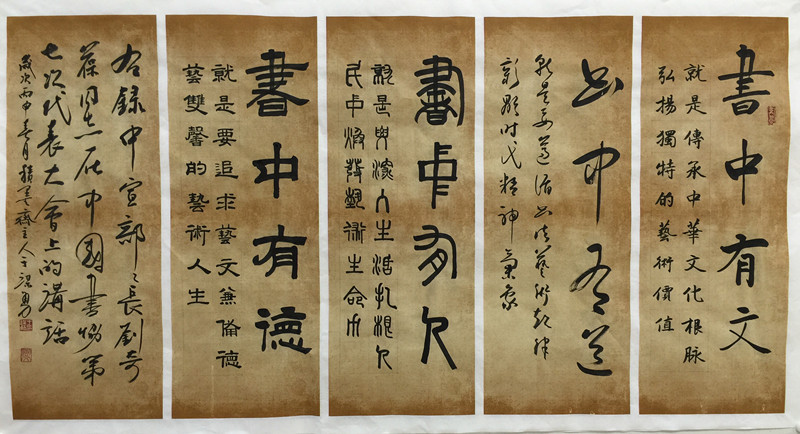 書中有文
就是傳承中華文化根脈
弘揚獨特的藝術價值
書中有道
就是要遵循书法藝術規律
彰顯时代精神氣象
書中有人
就是要深入生活扎根人
民中煥發藝術生命力
書中有德
就是要追求藝文兼備德
藝雙馨的藝術人生
右錄中宣部々長劉奇
葆同志在中國書協第
七次代表大會上的講話
歲次丙申春月積墨齋主人